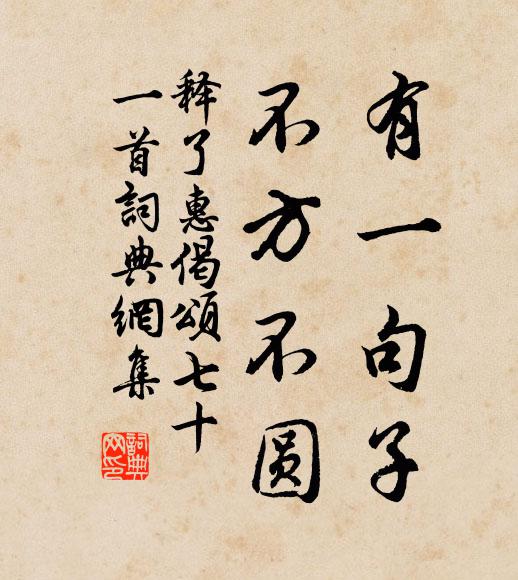 有一句子
不方不圆
释了惠偈颂七十
一首词典網集
詞典网印